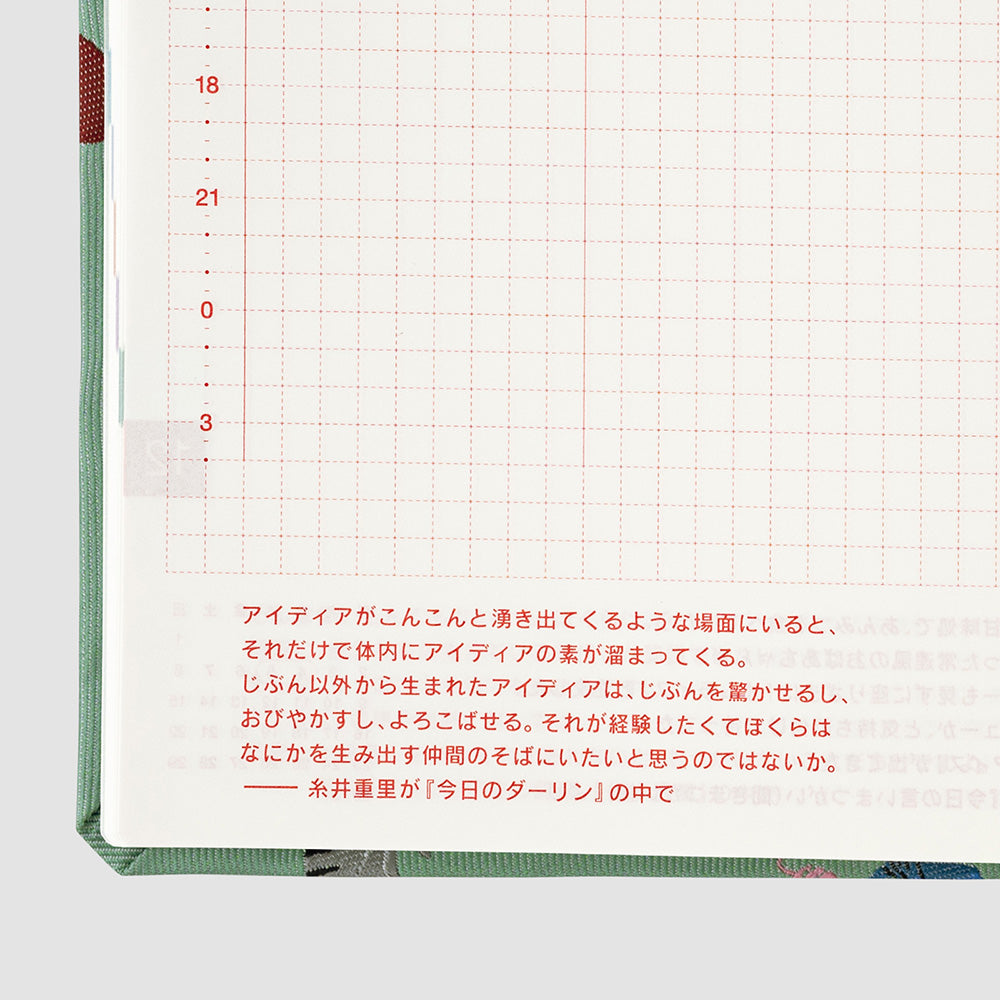 18
21
0
3
アイディアがこんこんと湧き出てくるような場面にいると、
それだけで体内にアイディアの素が溜まってくる。
じぶん以外から生まれたアイディアは、じぶんを驚かせるし、
おびやかすし、よろこばせる。それが経験したくてぼくらは
なにかを生み出す仲間のそばにいたいと思うのではないか。
―― 糸井重里が『今日のダーリン』の中で